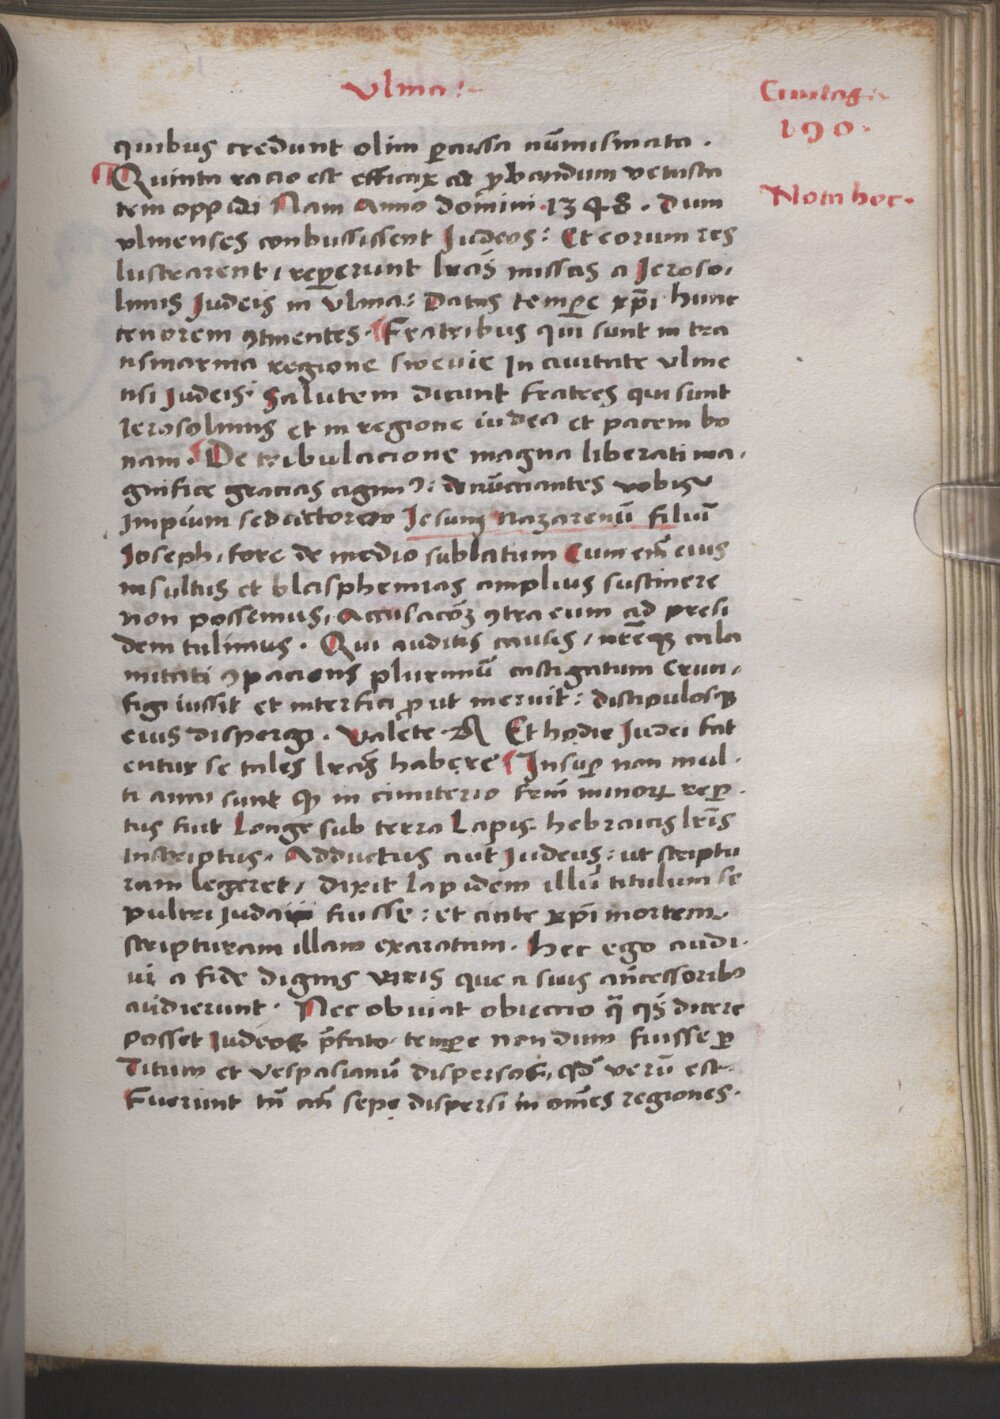 Vlma:
Ciuitas
190.
quibus credunt olim percussa nũmismata.
Quinta racio est efficax ad ꝓbandum vetusta
tem oppidi Nam Anno domini 1348. Dum
Nota hoc.
vlmenses conbussissent Iudeos: Et eorum res
lustrarent, reꝑerunt lrãs missas a Ieroso,
limis Iudeis in Vlma: Datas tempe xp̃i hunc
tenorem ꝯtinentes. Fratribus qui sunt in tra
nsmarina regione sweuie In ciuitate vlme
nsi Iudeis. Salutem dicunt fratres qui sunt
Ierosolimis et in regione iudea et pacem bo
nam. De tribulacione magna liberati ma,
gnifice gracias agimꝰ: denũcciantes vobis
Impium seductorem Iesum Nazarenũ filiũ
Ioseph, fore de medio sublatum Cum em̃ eius
insultus et blasphemias amplius sustinere
non possemus, Accusacõꝫ ꝯtra eum ad presi
dem tulimus. Qui auditis causis, nr̃eqꝫ cala
mitati ꝯpaciens plurimũ castigatum Cruci,
figi iussit et interfici ꝓut meruit: discipulosqꝫ
eius dispergi. Valete. Et hodie Iudei fat
entur se tales lrãs habere Insuꝑ non mul.
ti anni sunt qꝫ in cimiterio frm̃ minoꝝ reꝑ.
tus fuit Longe sub terra Lapis hebraicis lrĩs
Inscriptus. Adductus aut Iudeus: ut scriptu
ram legeret, dixit lapidem illũ titulum se
pulcri Iudaici fuisse: et ante xp̃i mortem
scripturam illam exaratam. Hec ego audi.
ui a fide dignis viris que a suis ancessoribꝰ
audierunt. Nec obuiat obieccio qã qs̃ dicere
posset Iudeos p̃fato tempe nondum fuisse ꝑ
Titum et Vespasianũ dispersos, qd̃ verũ est.
Fuerunt tñ añ sepe dispersi in om̃es regiones.